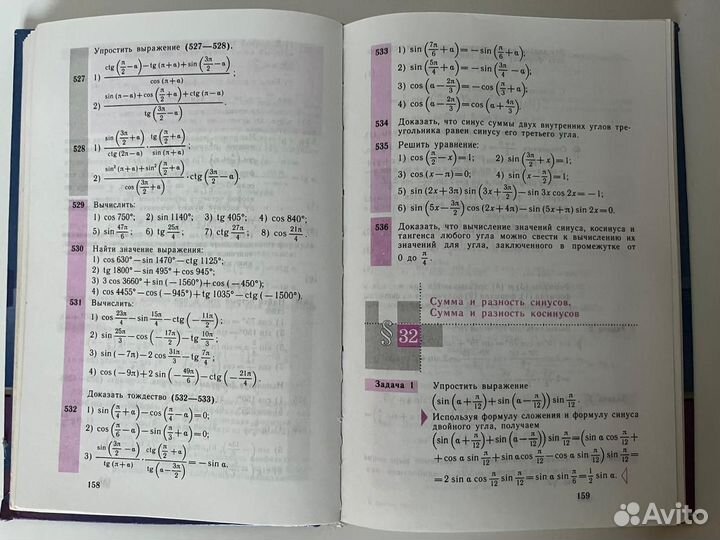 Упростить выражение (527—528).
527
1) (ctg(π/2−a)−tg(π+a)+sin(3π/2−a))/cos(π+a);
2) (sin(π−a)+cos(π/2+a)+ctg(π−a))/tg(3π/2−a).
528
1) sin(3π/2+a)/ctg(2π−a)·tg(π/2+a)/sin(π+a);
2) (sin²(π+a)+sin²(π/2+a))/cos(3π/2+a)·ctg(3π/2−a).
529 Вычислить:
1) cos 750°; 2) sin 1140°; 3) tg 405°; 4) cos 840°;
5) sin 47π/6; 6) tg 25π/4; 7) ctg 27π/4; 8) cos 21π/4.
530 Найти значение выражения:
1) cos 630°−sin 1470°−ctg 1125°;
2) tg 1800°−sin 495°+cos 945°;
3) 3 cos 3660°+sin(−1560°)+cos(−450°);
4) cos 4455°−cos(−945°)+tg 1035°−ctg(−1500°).
531 Вычислить:
1) cos 23π/4−sin 15π/4−ctg(−11π/2);
2) sin 25π/3−cos(−17π/2)−tg 10π/3;
3) sin(−7π)−2 cos 31π/3−tg 7π/4;
4) cos(−9π)+2 sin(−49π/6)−ctg(−21π/4).
Доказать тождество (532—533).
532 1) sin(π/4+a)−cos(π/4−a)=0;
2) cos(π/6−a)−sin(π/3+a)=0;
3) sin(3π/2−a)/tg(π+a)·ctg(π/2+a)/tg(a−3π/2)=−sin a.
158
533 1) sin(7π/6+a)=−sin(π/6+a);
2) sin(5π/4+a)=−sin(3π/4−a);
3) cos(a−2π/3)=−cos(π/3+a);
4) cos(a−2π/3)=cos(a+4π/3).
534 Доказать, что синус суммы двух внутренних углов тре-
угольника равен синусу его третьего угла.
535 Решить уравнение:
1) cos(π/2−x)=1; 2) sin(3π/2+x)=1;
3) cos(x−π)=0; 4) sin(x−π/2)=1;
5) sin(2x+3π) sin(3x+3π/2)−sin 3x cos 2x=−1;
6) sin(5x−3π/2) cos(2x+4π)−sin(5x+π) sin 2x=0.
536 Доказать, что вычисление значений синуса, косинуса и
тангенса любого угла можно свести к вычислению их
значений для угла, заключенного в промежутке от
0 до π/4.
Сумма и разность синусов.
Сумма и разность косинусов
§ 32
Задача 1 Упростить выражение
(sin(a+π/12)+sin(a−π/12)) sin π/12.
Используя формулу сложения и формулу синуса
двойного угла, получаем
(sin(a+π/12)+sin(a−π/12)) sin π/12=(sin a cos π/12+
+cos a sin π/12+sin a cos π/12−cos a sin π/12) sin π/12=
=2 sin a cos π/12 sin π/12=sin a sin π/6=1/2 sin a.
159
Avito